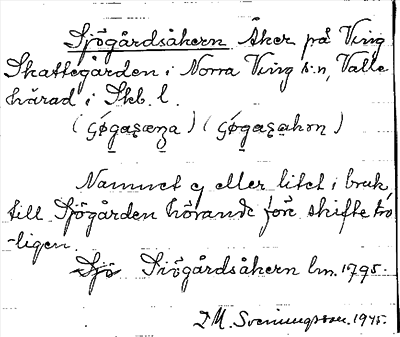 Sjögårdsåkern Åker på Ving
Skattegården i Norra Ving s:n, Valle
härad i Skb. l.
Namnet ej eller litet i bruk,
till Sjögården hörande före skifte tro
-ligen.
Sjö Siögårdsåkern lm. 1795.
I M. Svenungsson. 1945.